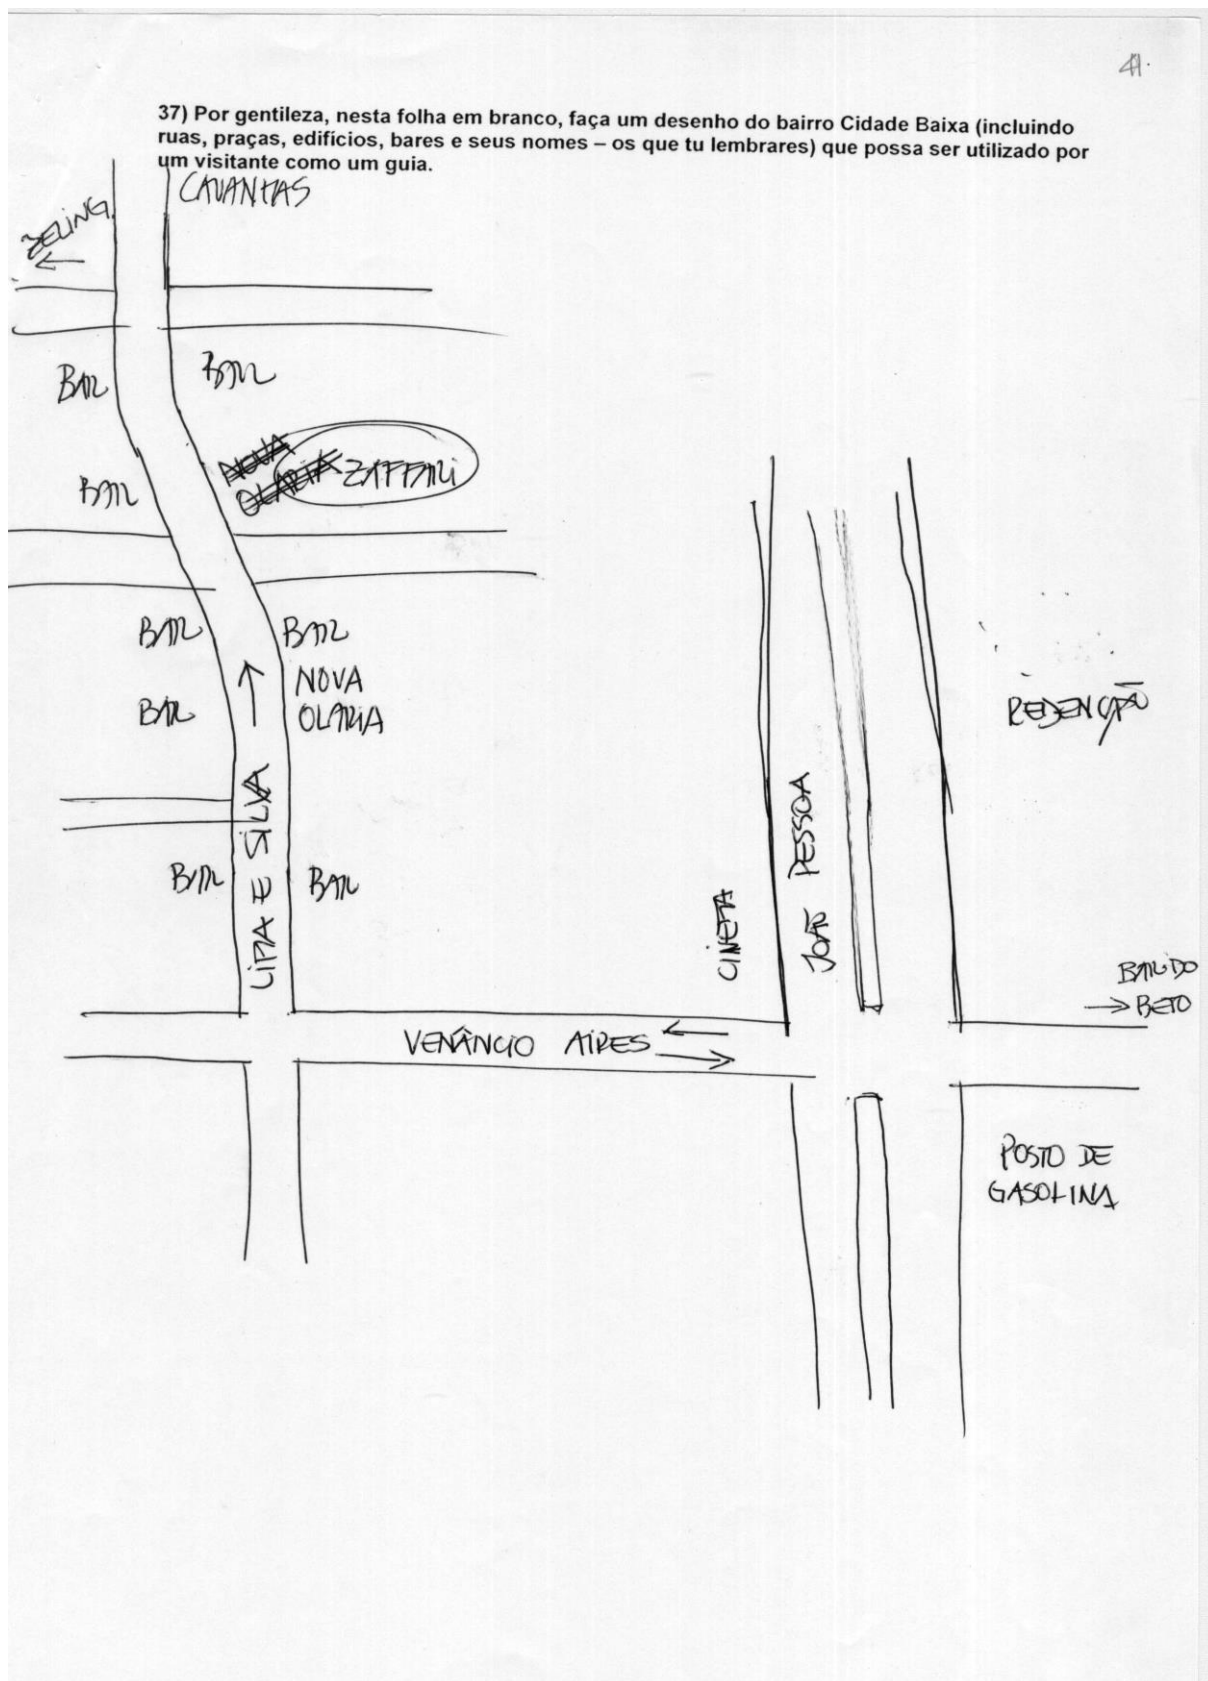 41.
37) Por gentileza, nesta folha em branco, faça um desenho do bairro Cidade Baixa (incluindo
ruas, praças, edifícios, bares e seus nomes – os que tu lembrares) que possa ser utilizado por
um visitante como um guia.
CAVANHAS
BAR
BAR
NOVA
OLARIA
ZAFFARI
BAR
BAR
BAR
NOVA
OLARIA
BAR
REDENÇÃO
LIMA E SILVA
JOÃO PESSOA
BAR
BAR
CINEMA
BAR DO
BETO
VENÂNCIO AIRES
POSTO DE
GASOLINA